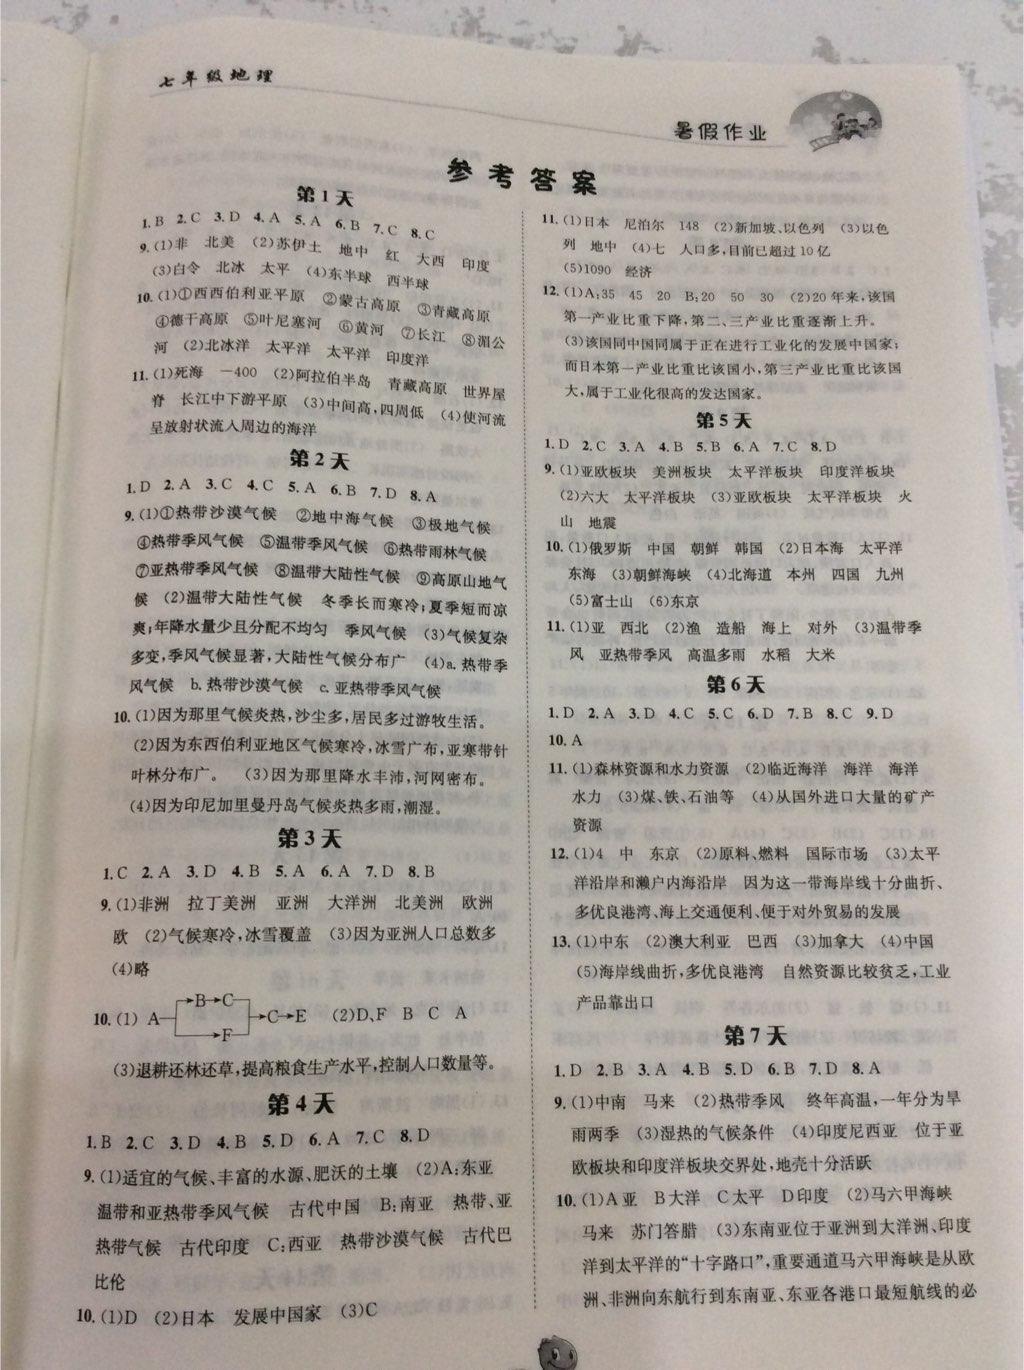 七年级地理
暑假作业
参考答案
第1天
1.B 2.C 3.D 4.A 5.A 6.B 7.C 8.C
9.(1)非 北美 (2)苏伊士 地中 红 大西 印度
(3)白令 北冰 太平 (4)东半球 西半球
10.(1)①西西伯利亚平原 ②蒙古高原 ③青藏高原
④德干高原 ⑤叶尼塞河 ⑥黄河 ⑦长江 ⑧湄公
河 (2)北冰洋 太平洋 太平洋 印度洋
11.(1)死海 −400 (2)阿拉伯半岛 青藏高原 世界屋
脊 长江中下游平原 (3)中间高,四周低 (4)使河流
呈放射状流入周边的海洋
第2天
1.D 2.A 3.C 4.C 5.A 6.B 7.D 8.A
9.(1)①热带沙漠气候 ②地中海气候 ③极地气候
④热带季风气候 ⑤温带季风气候 ⑥热带雨林气候
⑦亚热带季风气候 ⑧温带大陆性气候 ⑨高原山地气
候 (2)温带大陆性气候 冬季长而寒冷;夏季短而凉
爽;年降水量少且分配不均匀 季风气候 (3)气候复杂
多变,季风气候显著,大陆性气候分布广 (4)a.热带季
风气候 b.热带沙漠气候 c.亚热带季风气候
10.(1)因为那里气候炎热,沙尘多,居民多过游牧生活。
(2)因为东西伯利亚地区气候寒冷,冰雪广布,亚寒带针
叶林分布广。 (3)因为那里降水丰沛,河网密布。
(4)因为印尼加里曼丹岛气候炎热多雨,潮湿。
第3天
1.C 2.A 3.D 4.B 5.A 6.A 7.D 8.B
9.(1)非洲 拉丁美洲 亚洲 大洋洲 北美洲 欧洲
欧 (2)气候寒冷,冰雪覆盖 (3)因为亚洲人口总数多
(4)略
10.(1) A B→C F C→E (2)D、F B C A
(3)退耕还林还草,提高粮食生产水平,控制人口数量等。
第4天
1.B 2.C 3.D 4.B 5.D 6.A 7.C 8.D
9.(1)适宜的气候、丰富的水源、肥沃的土壤 (2)A:东亚
温带和亚热带季风气候 古代中国 B:南亚 热带、亚
热带气候 古代印度 C:西亚 热带沙漠气候 古代巴
比伦
10.(1)D (2)日本 发展中国家 (3)C
11.(1)日本 尼泊尔 148 (2)新加坡、以色列 (3)以色
列 地中 (4)七 人口多,目前已超过10亿
(5)1090 经济
12.(1)A:35 45 20 B:20 50 30 (2)20年来,该国
第一产业比重下降,第二、三产业比重逐渐上升。
(3)该国同中国同属于正在进行工业化的发展中国家;
而日本第一产业比重比该国小,第三产业比重比该国
大,属于工业化很高的发达国家。
第5天
1.D 2.C 3.A 4.B 5.B 6.A 7.C 8.D
9.(1)亚欧板块 美洲板块 太平洋板块 印度洋板块
(2)六大 太平洋板块 (3)亚欧板块 太平洋板块 火
山 地震
10.(1)俄罗斯 中国 朝鲜 韩国 (2)日本海 太平洋
东海 (3)朝鲜海峡 (4)北海道 本州 四国 九州
(5)富士山 (6)东京
11.(1)亚 西北 (2)渔 造船 海上 对外 (3)温带季
风 亚热带季风 高温多雨 水稻 大米
第6天
1.D 2.A 3.D 4.C 5.C 6.D 7.B 8.C 9.D
10.A
11.(1)森林资源和水力资源 (2)临近海洋 海洋 海洋
水力 (3)煤、铁、石油等 (4)从国外进口大量的矿产
资源
12.(1)4 中 东京 (2)原料、燃料 国际市场 (3)太平
洋沿岸和濑户内海沿岸 因为这一带海岸线十分曲折、
多优良港湾、海上交通便利、便于对外贸易的发展
13.(1)中东 (2)澳大利亚 巴西 (3)加拿大 (4)中国
(5)海岸线曲折,多优良港湾 自然资源比较贫乏,工业
产品靠出口
第7天
1.D 2.B 3.A 4.C 5.B 6.B 7.D 8.A
9.(1)中南 马来 (2)热带季风 终年高温,一年分为旱
雨两季 (3)湿热的气候条件 (4)印度尼西亚 位于亚
欧板块和印度洋板块交界处,地壳十分活跃
10.(1)A亚 B大洋 C太平 D印度 (2)马六甲海峡
马来 苏门答腊 (3)东南亚位于亚洲到大洋洲、印度
洋到太平洋的“十字路口”,重要通道马六甲海峡是从欧
洲、非洲向东航行到东南亚、东亚各港口最短航线的必